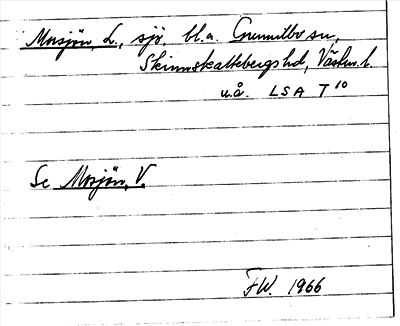 Morsjön, L., sjö, bl.a. Gunnilbo sn,
Skinnskattebergs hd, Västm.l.
u.å. LSA T 10
Se Morsjön, V.
F.W. 1966